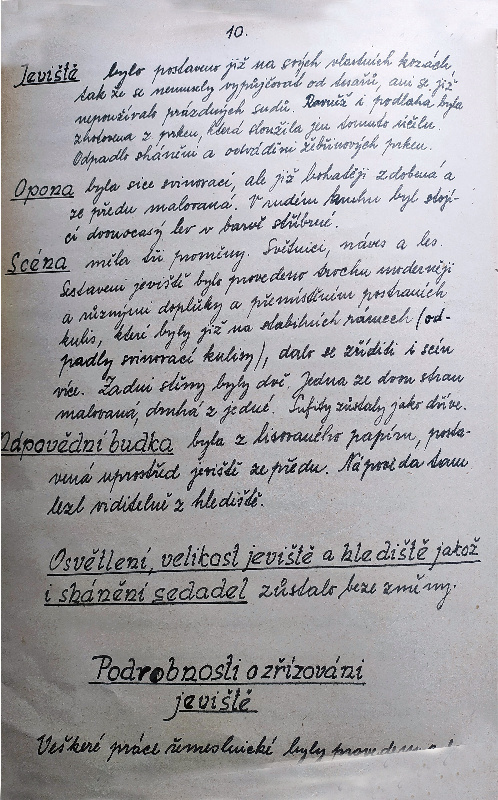 10.
Jeviště bylo postaveno již na svých vlastních kozách,
tak že se nemusely vypůjčovat od tesařů, ani se již
nepoužívalo prázdných sudů. Rovněž i podlaha byla
zhotovena z prken, která sloužila jen tomuto účelu.
Odpadlo shánění a odvádění žebřinových prken.
Opona byla sice svinovací, ale již bohatěji zdobená a
ze předu malovaná. V rudém kruhu byl stojí-
cí dvouocasý lev v barvě stříbrné.
Scéna měla tři proměny. Světnici, náves a les.
Sestavení jeviště bylo provedeno trochu moderněji
a různými doplňky a přemístěním postraních
kulis, které byly již na stabilních rámech (od-
padly svinovací kulisy), dalo se zříditi i scén
více. Zadní stěny byly dvě. Jedna ze dvou stran
malovaná, druhá z jedné. Sufity zůstaly jako dříve.
Nápovědní budka byla z lisovaného papíru, posta-
vená uprostřed jeviště ze předu. Nápověda tam
lezl viditelně z hlediště.
Osvětlení, velikost jeviště a hlediště jakož
i shánění sedadel zůstalo beze změny.
Podrobnosti o zřizování
jeviště
Veškeré práce řemeslnické byly provedeny